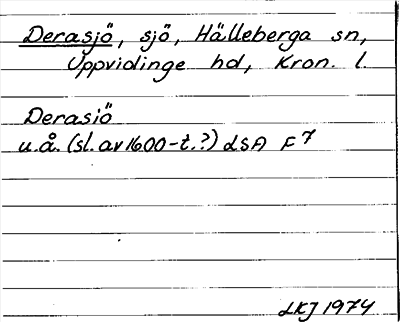 Derasjö, sjö, Hälleberga sn,
Uppvidinge hd, Kron. l.
Derasiö
u.å. (sl. av 1600-t.?) LSA F7
LKJ 1974